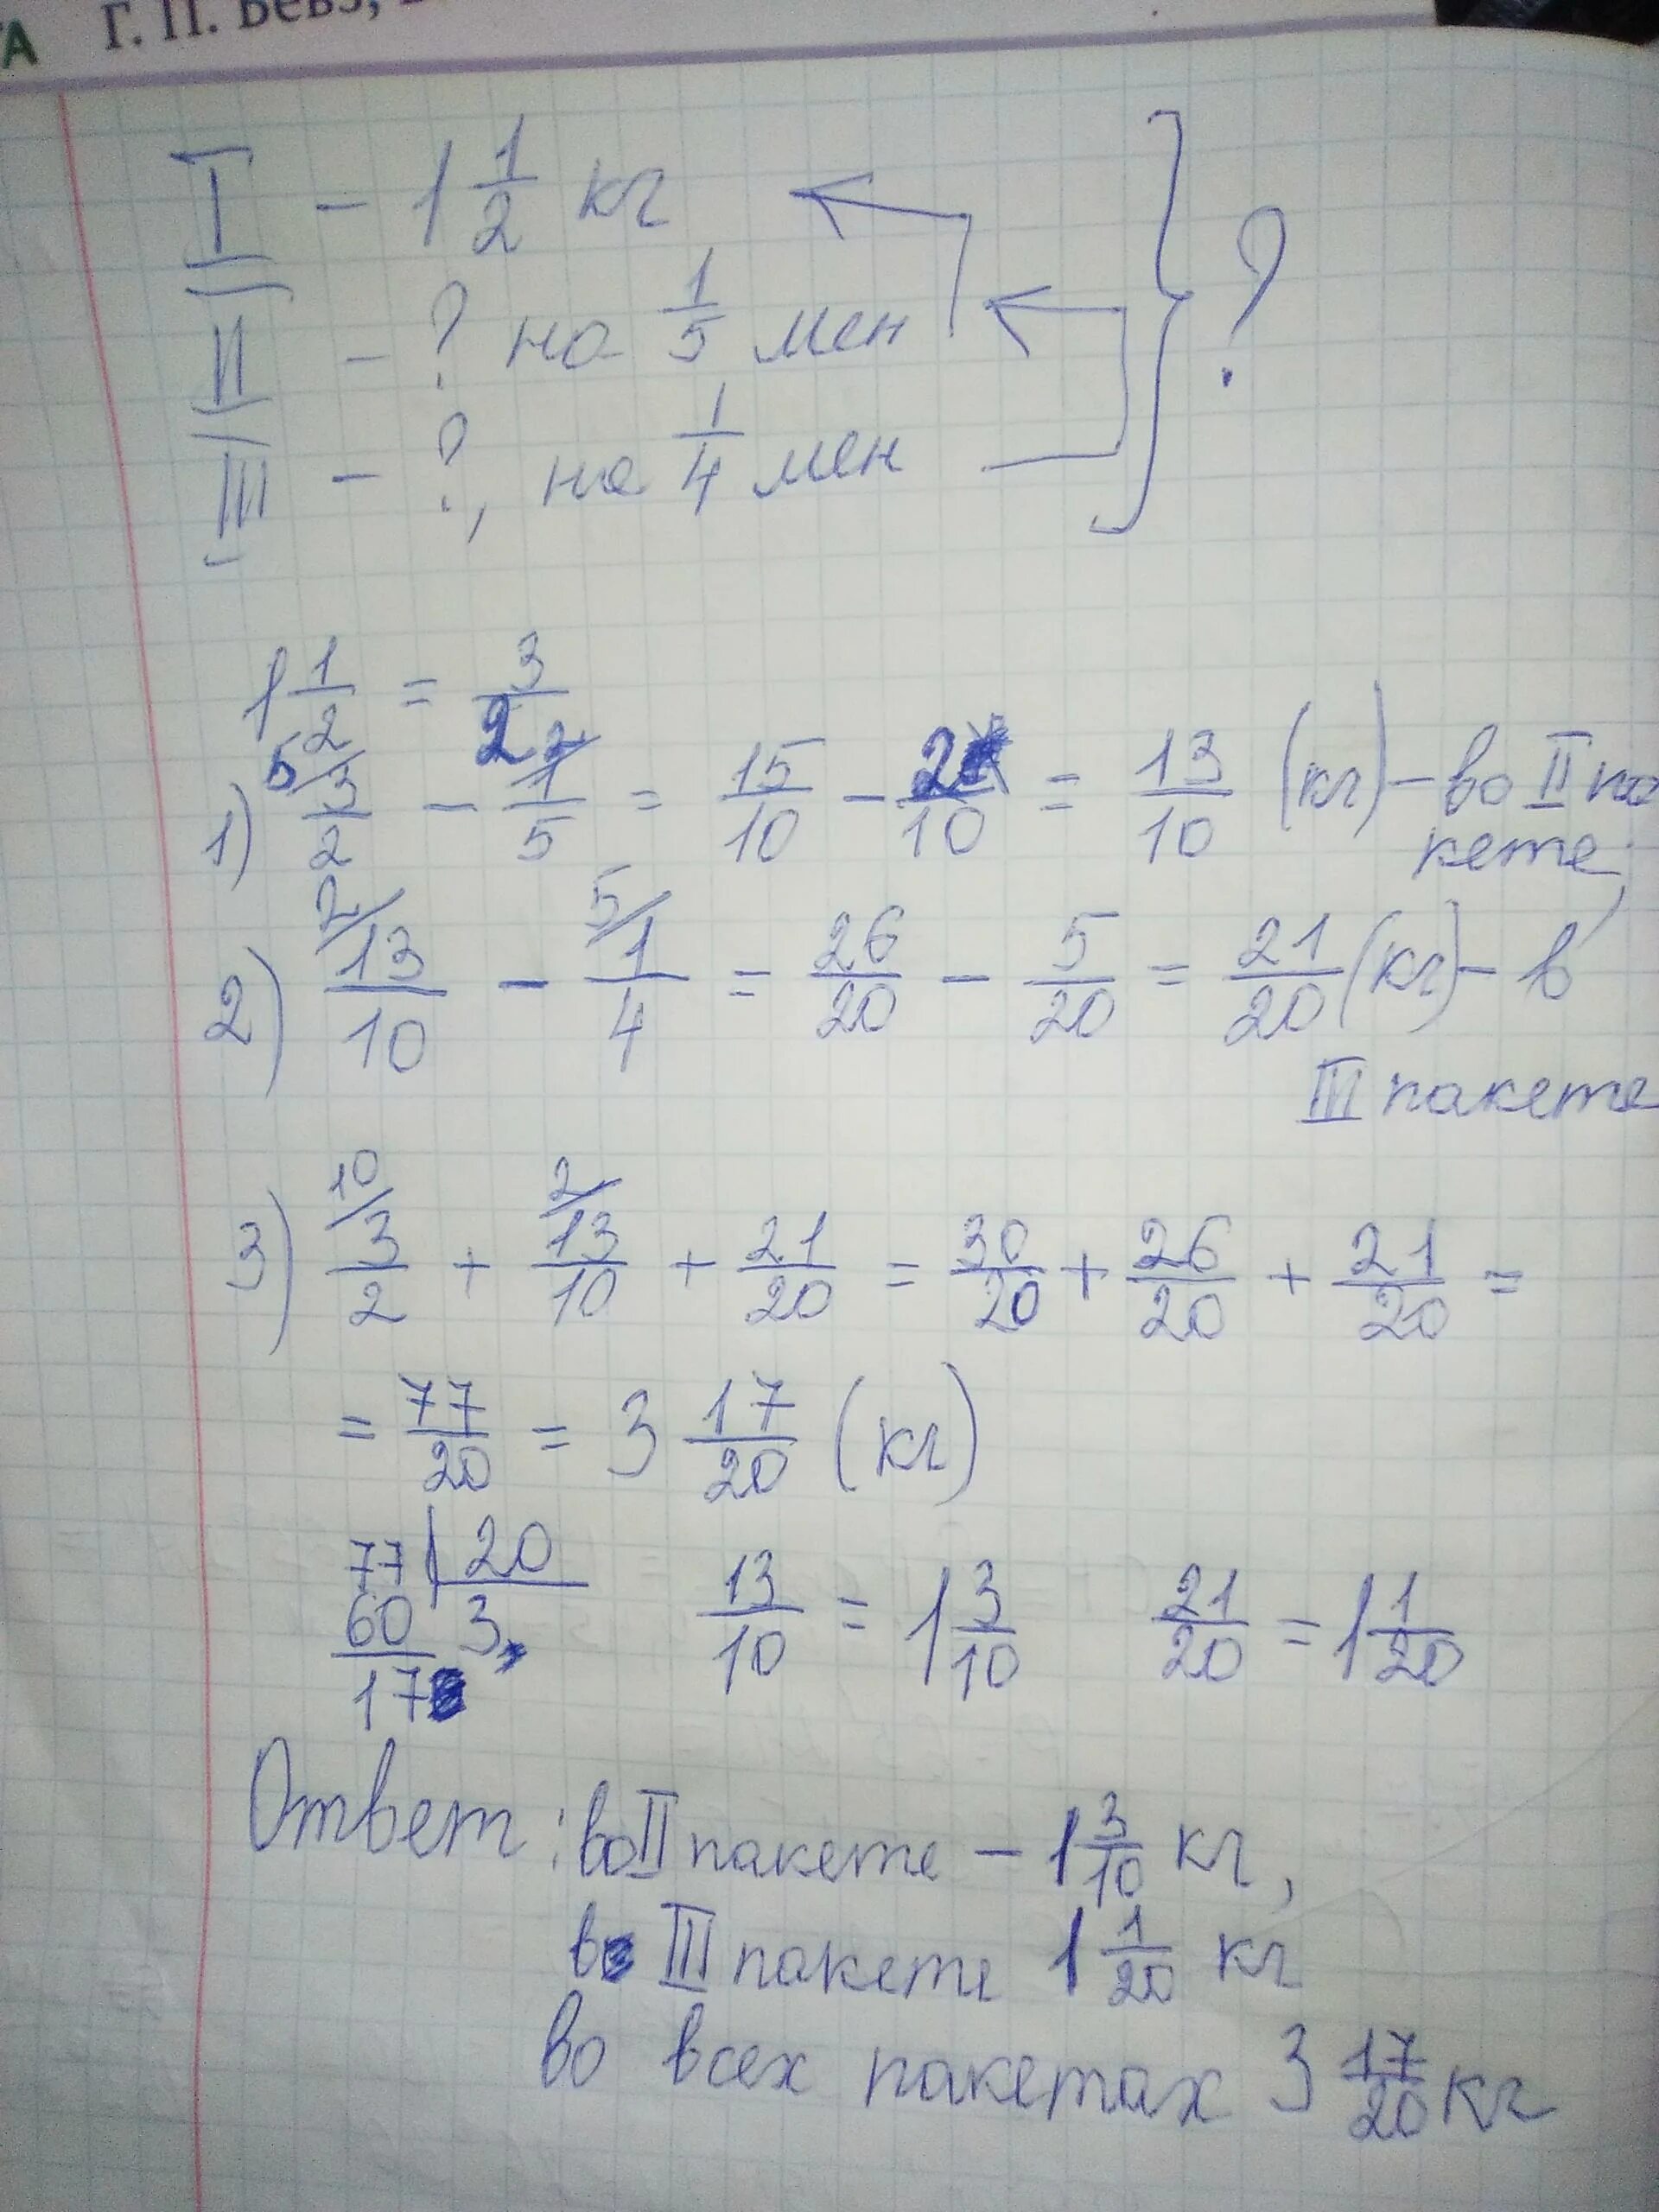 Г. П. Бевз,
I - 1 1/2 кг
II - ? на 1/5 мен
III - ?, на 1/4 мен
} ?
1 1/2 = 3/2
1) 5/ 3/2 - 2/ 1/5 = 15/10 - 2/10 = 13/10 (кг) - во II па
кете;
2) 2/ 13/10 - 5/ 1/4 = 26/20 - 5/20 = 21/20 (кг) - в
III пакете
3) 10/ 3/2 + 2/ 13/10 + 21/20 = 30/20 + 26/20 + 21/20 =
= 77/20 = 3 17/20 (кг)
77 | 20
60 3
17
13/10 = 1 3/10 21/20 = 1 1/20
Ответ: во II пакете - 1 3/10 кг,
в III пакете 1 1/20 кг
во всех пакетах 3 17/20 кг